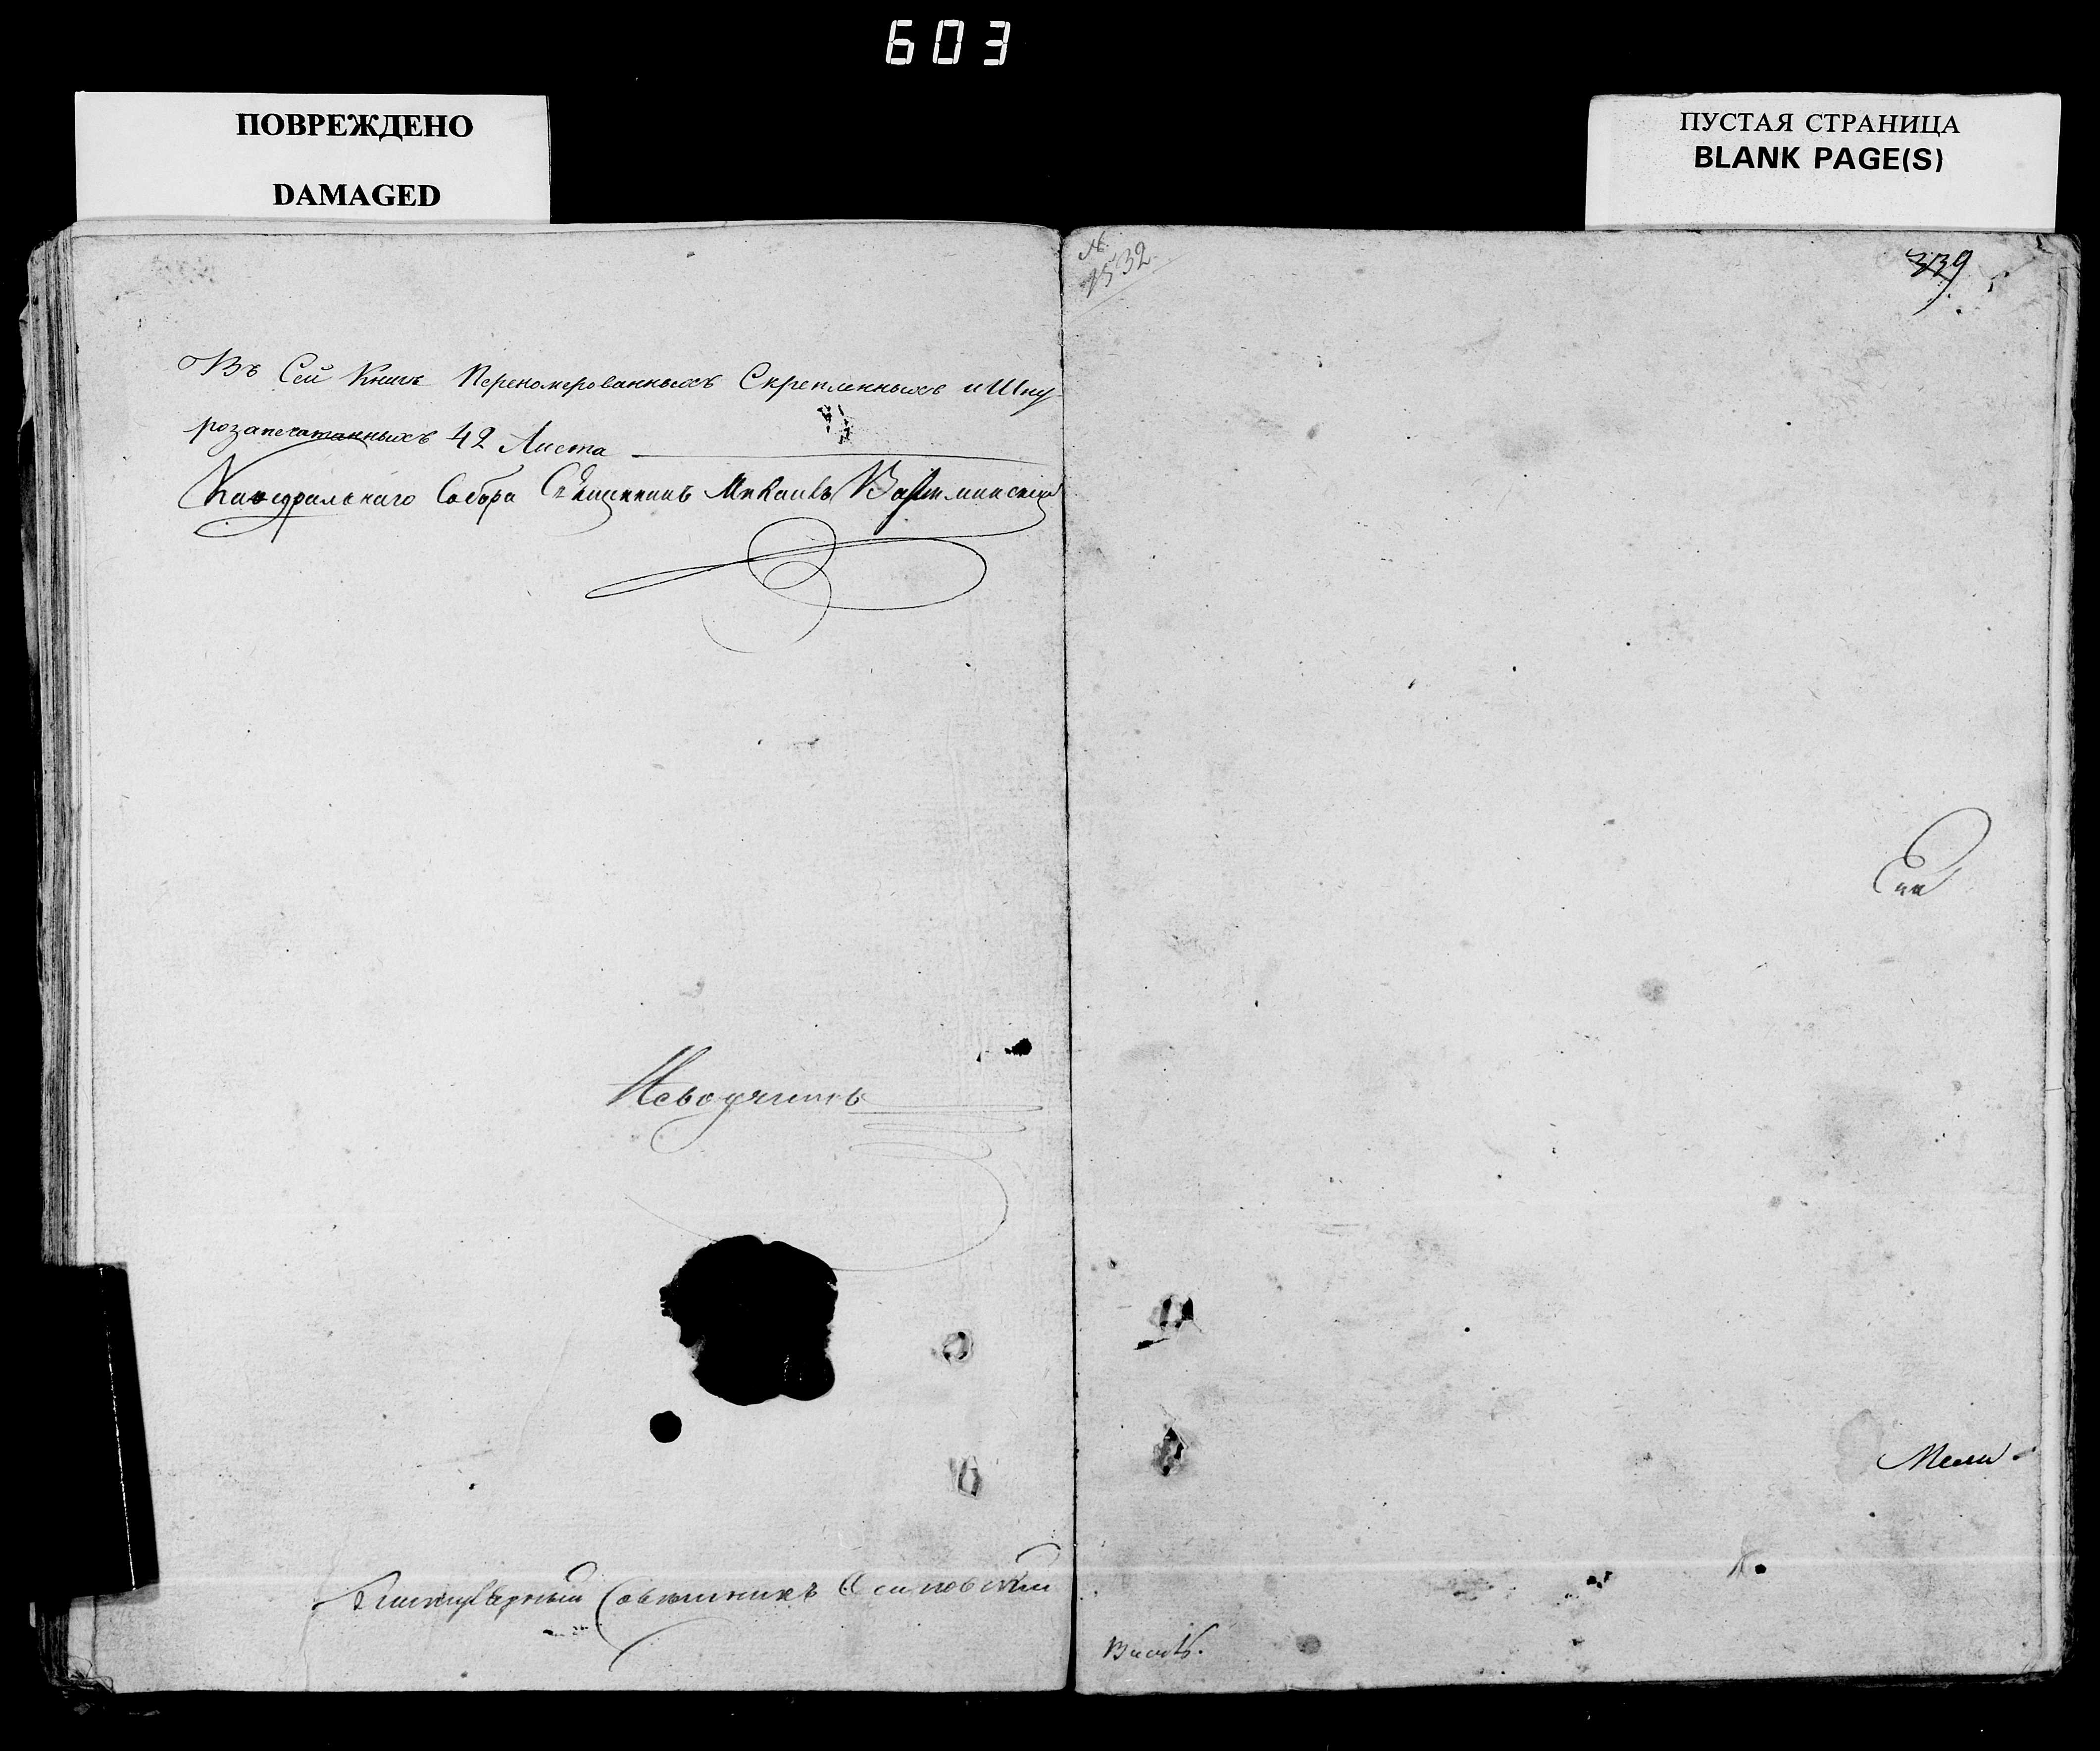 603
ПОВРЕЖДЕНО
DAMAGED
ПУСТАЯ СТРАНИЦА
BLANK PAGE(S)
Въ Сей Книге Переномерованныхъ Скрепленныхъ и Шну-
розапечатанныхъ 42 Листа
Кафедральнаго Собора Священникъ Михаилъ
Титулярный Совѣтникъ Осиповскій
№
1532
339